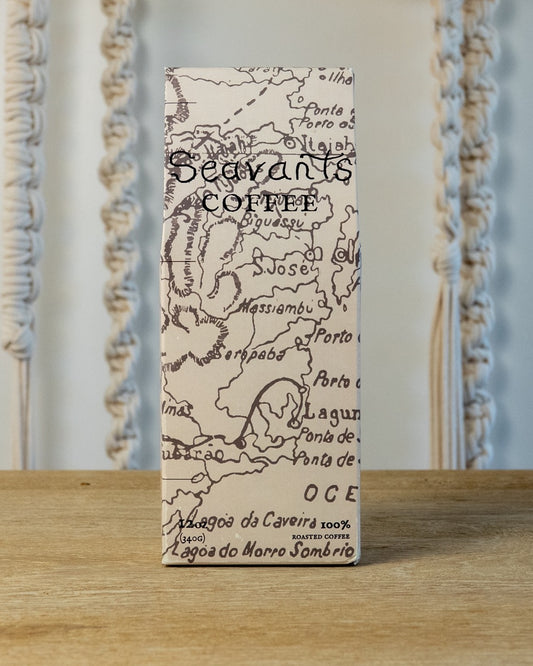 Ilha
Ponta
Porto
Itajah
Seavants
COFFEE
Biguassu
S. José
Massiambú
Porto
Porto
Lagun
Ponta de
Ponta de
OCE
12oz
Lagoa da Caveira
100%
(340G)
ROASTED COFFEE
Lagoa do Morro Sombrio